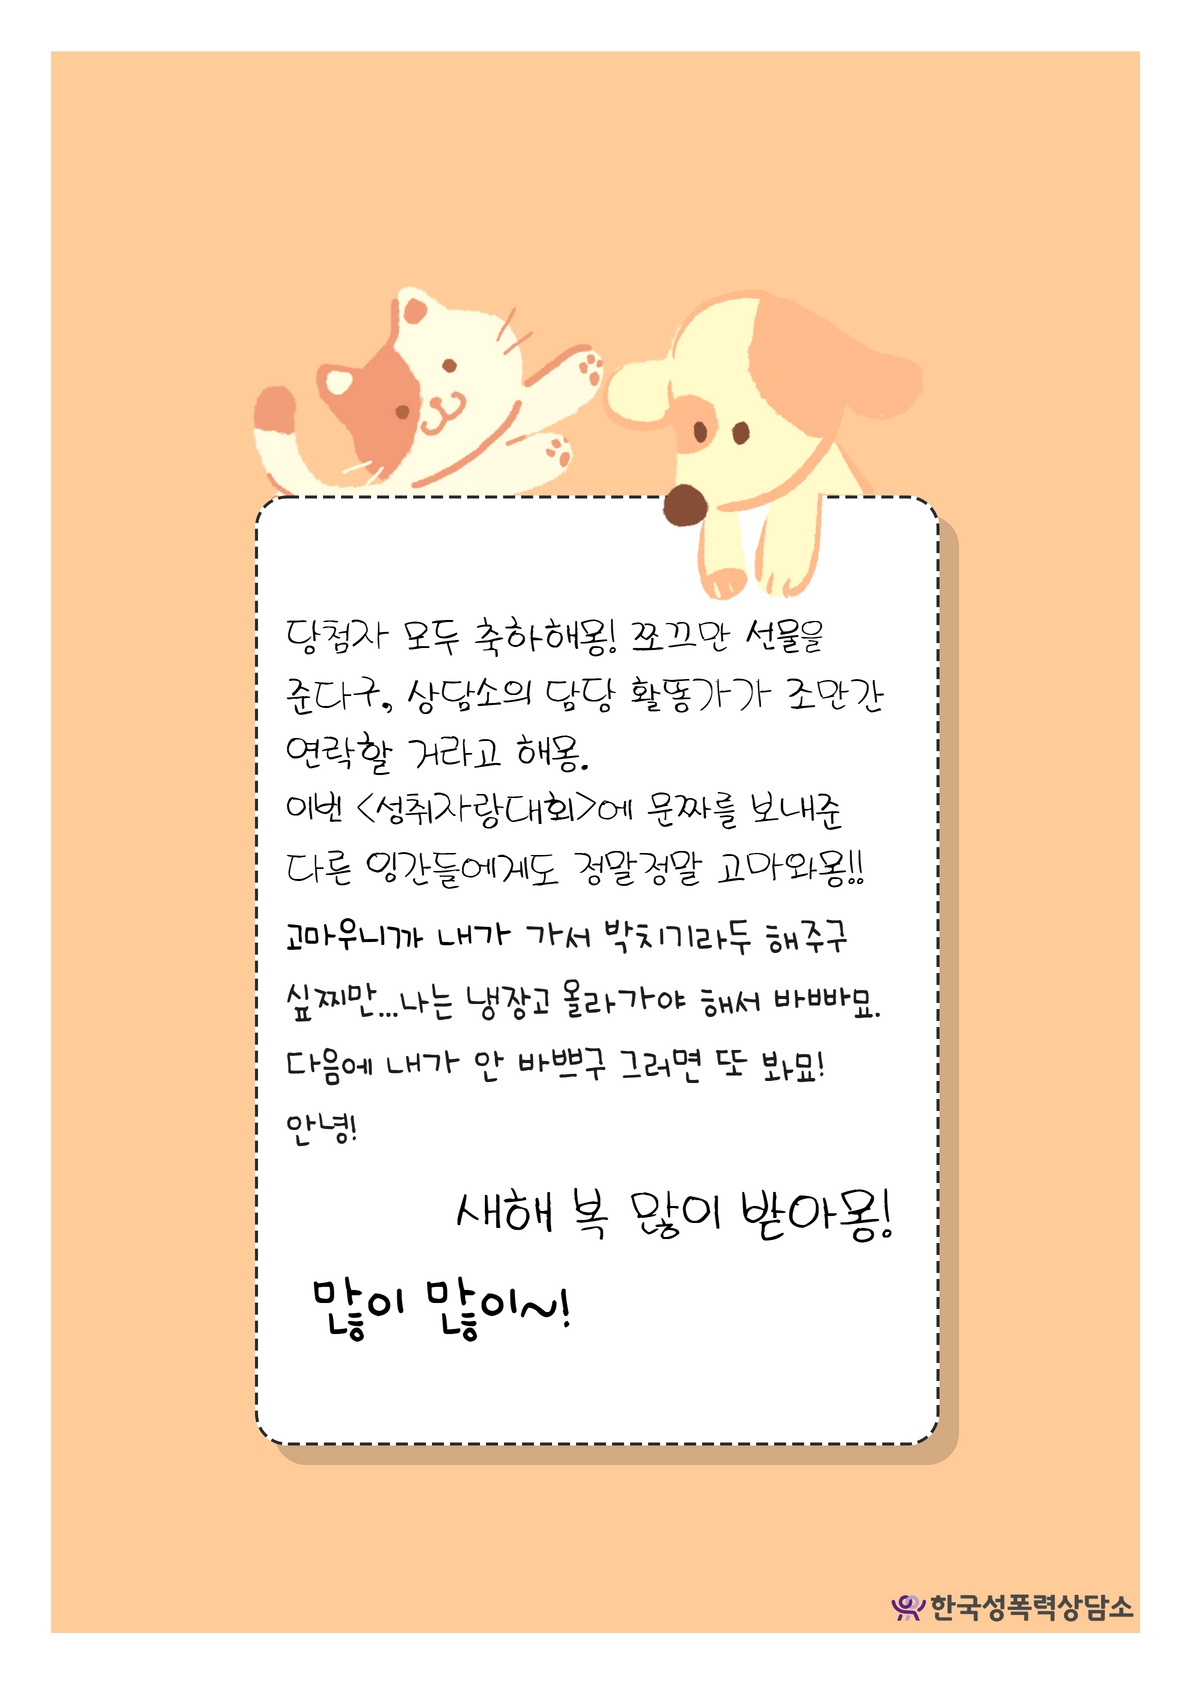 당첨자 모두 축하해몽! 쪼끄만 선물을
준다구, 상담소의 담당 활동가가 조만간
연락할 거라고 해몽.
이번 <성취자랑대회>에 문짜를 보내준
다른 잉간들에게도 정말정말 고마와몽!!
고마우니까 내가 가서 박치기라두 해주구
싶찌만...나는 냉장고 올라가야 해서 바빠묘.
다음에 내가 안 바쁘구 그러면 또 봐묘!
안녕!
새해 복 많이 받아몽!
많이 많이~!
한국성폭력상담소